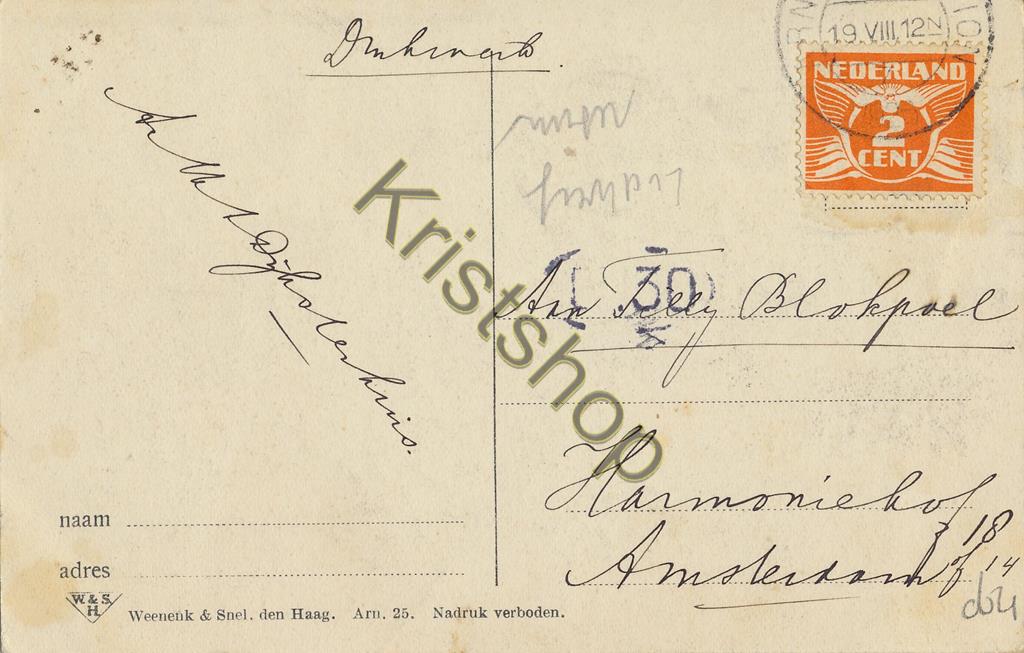 Drukwerk.
19 VIII. 12 N
NEDERLAND
2
CENT
L 30
Aan Tilly Blokpoel
Harmoniehof
18
Amsterdam of 14
Kristshop
naam
adres
W. & S.
H.
Weenenk & Snel. den Haag. Arn. 25. Nadruk verboden.